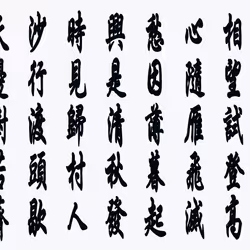 相望試登高
心隨雁飛滅
愁因薄暮起
興是清秋發
時見歸村人
沙行渡頭歇